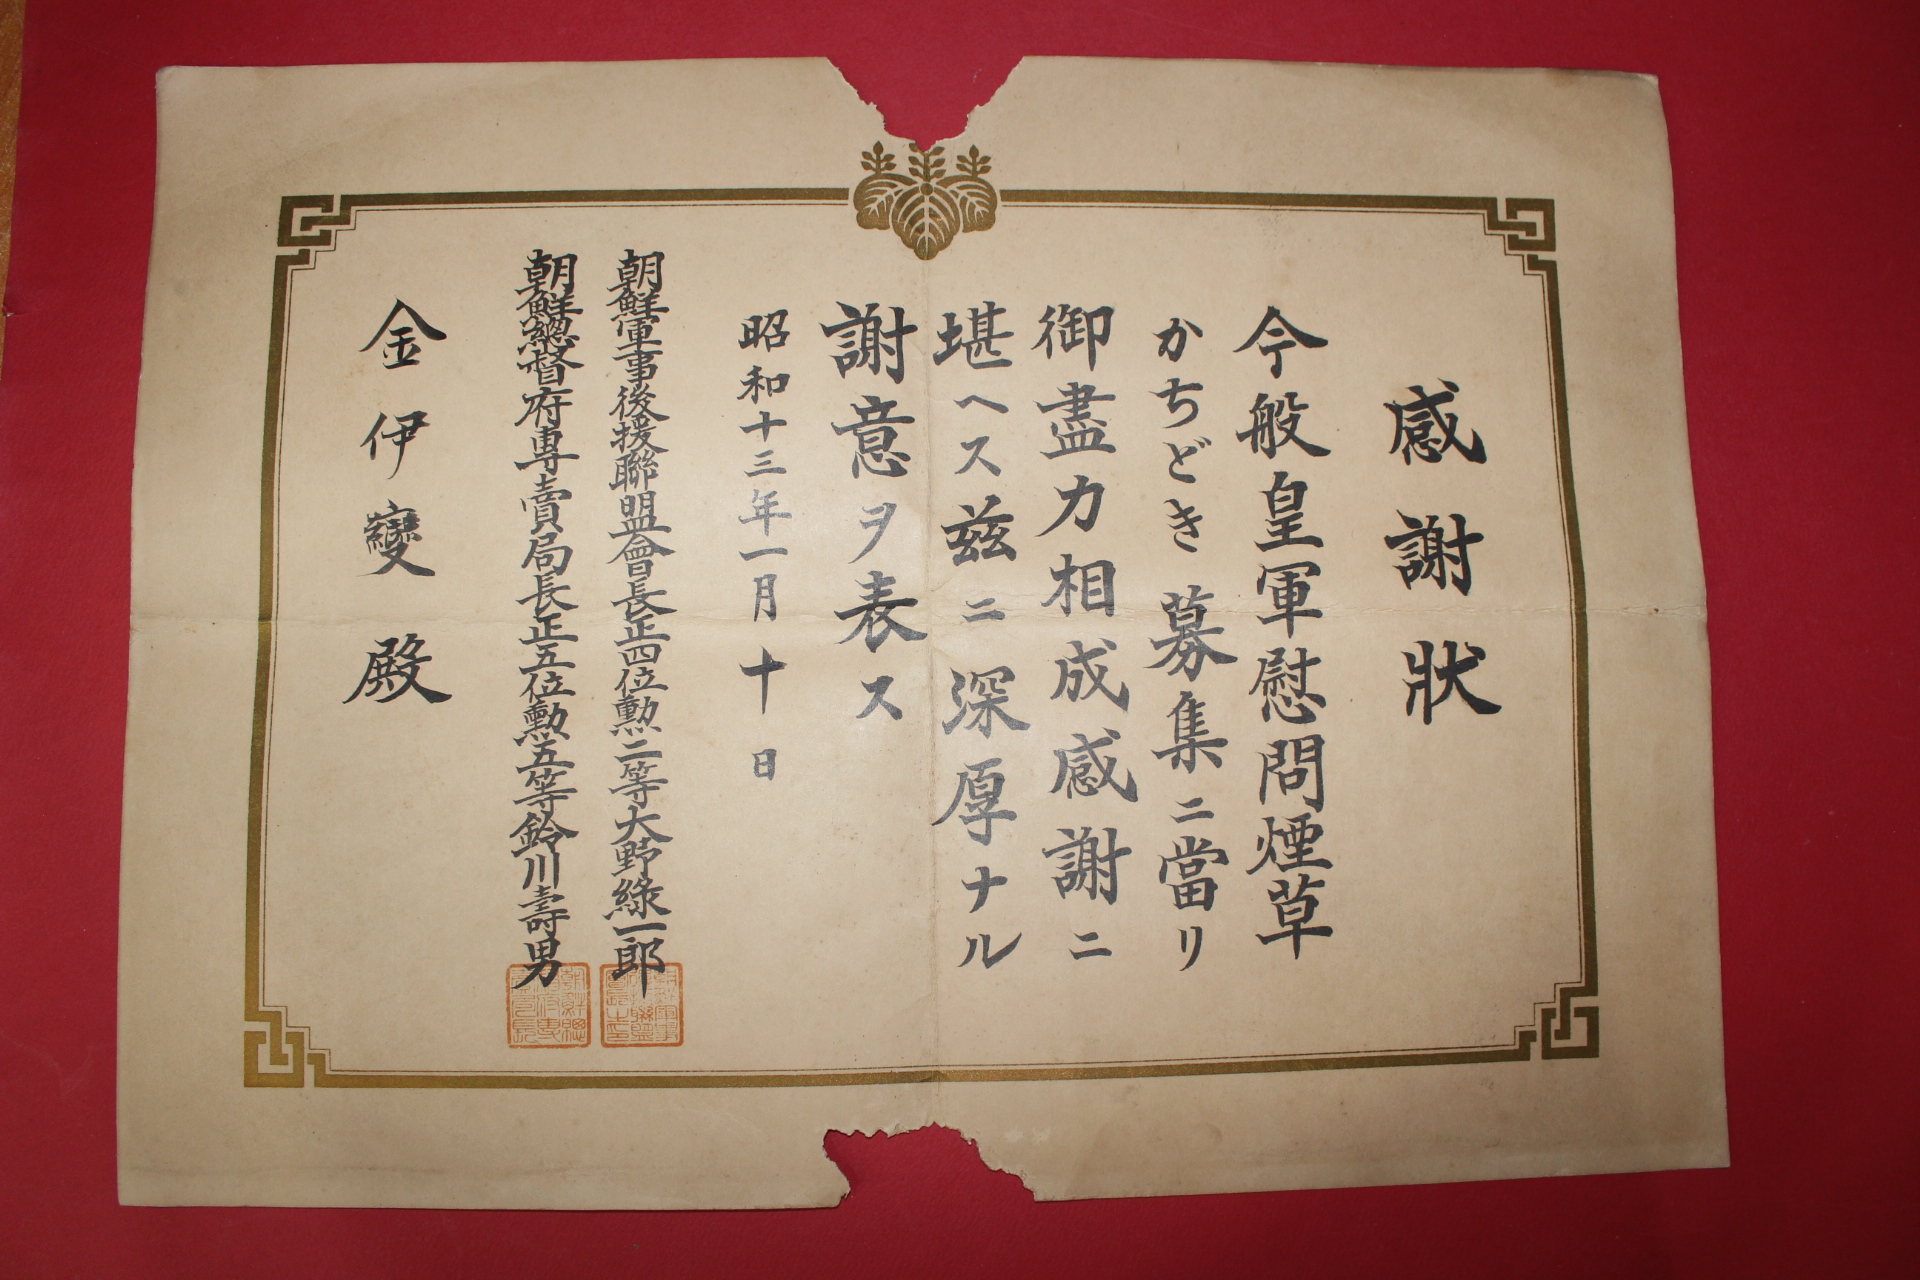 感謝狀
今般皇軍慰問煙草
かちどき募集ニ當リ
御盡力相成感謝ニ
堪ヘス玆ニ深厚ナル
謝意ヲ表ス
昭和十三年一月十日
朝鮮軍事後援聯盟會長正四位勲二等大野綠一郎
朝鮮總督府專賣局長正五位勲五等鈴川壽男
金伊變殿